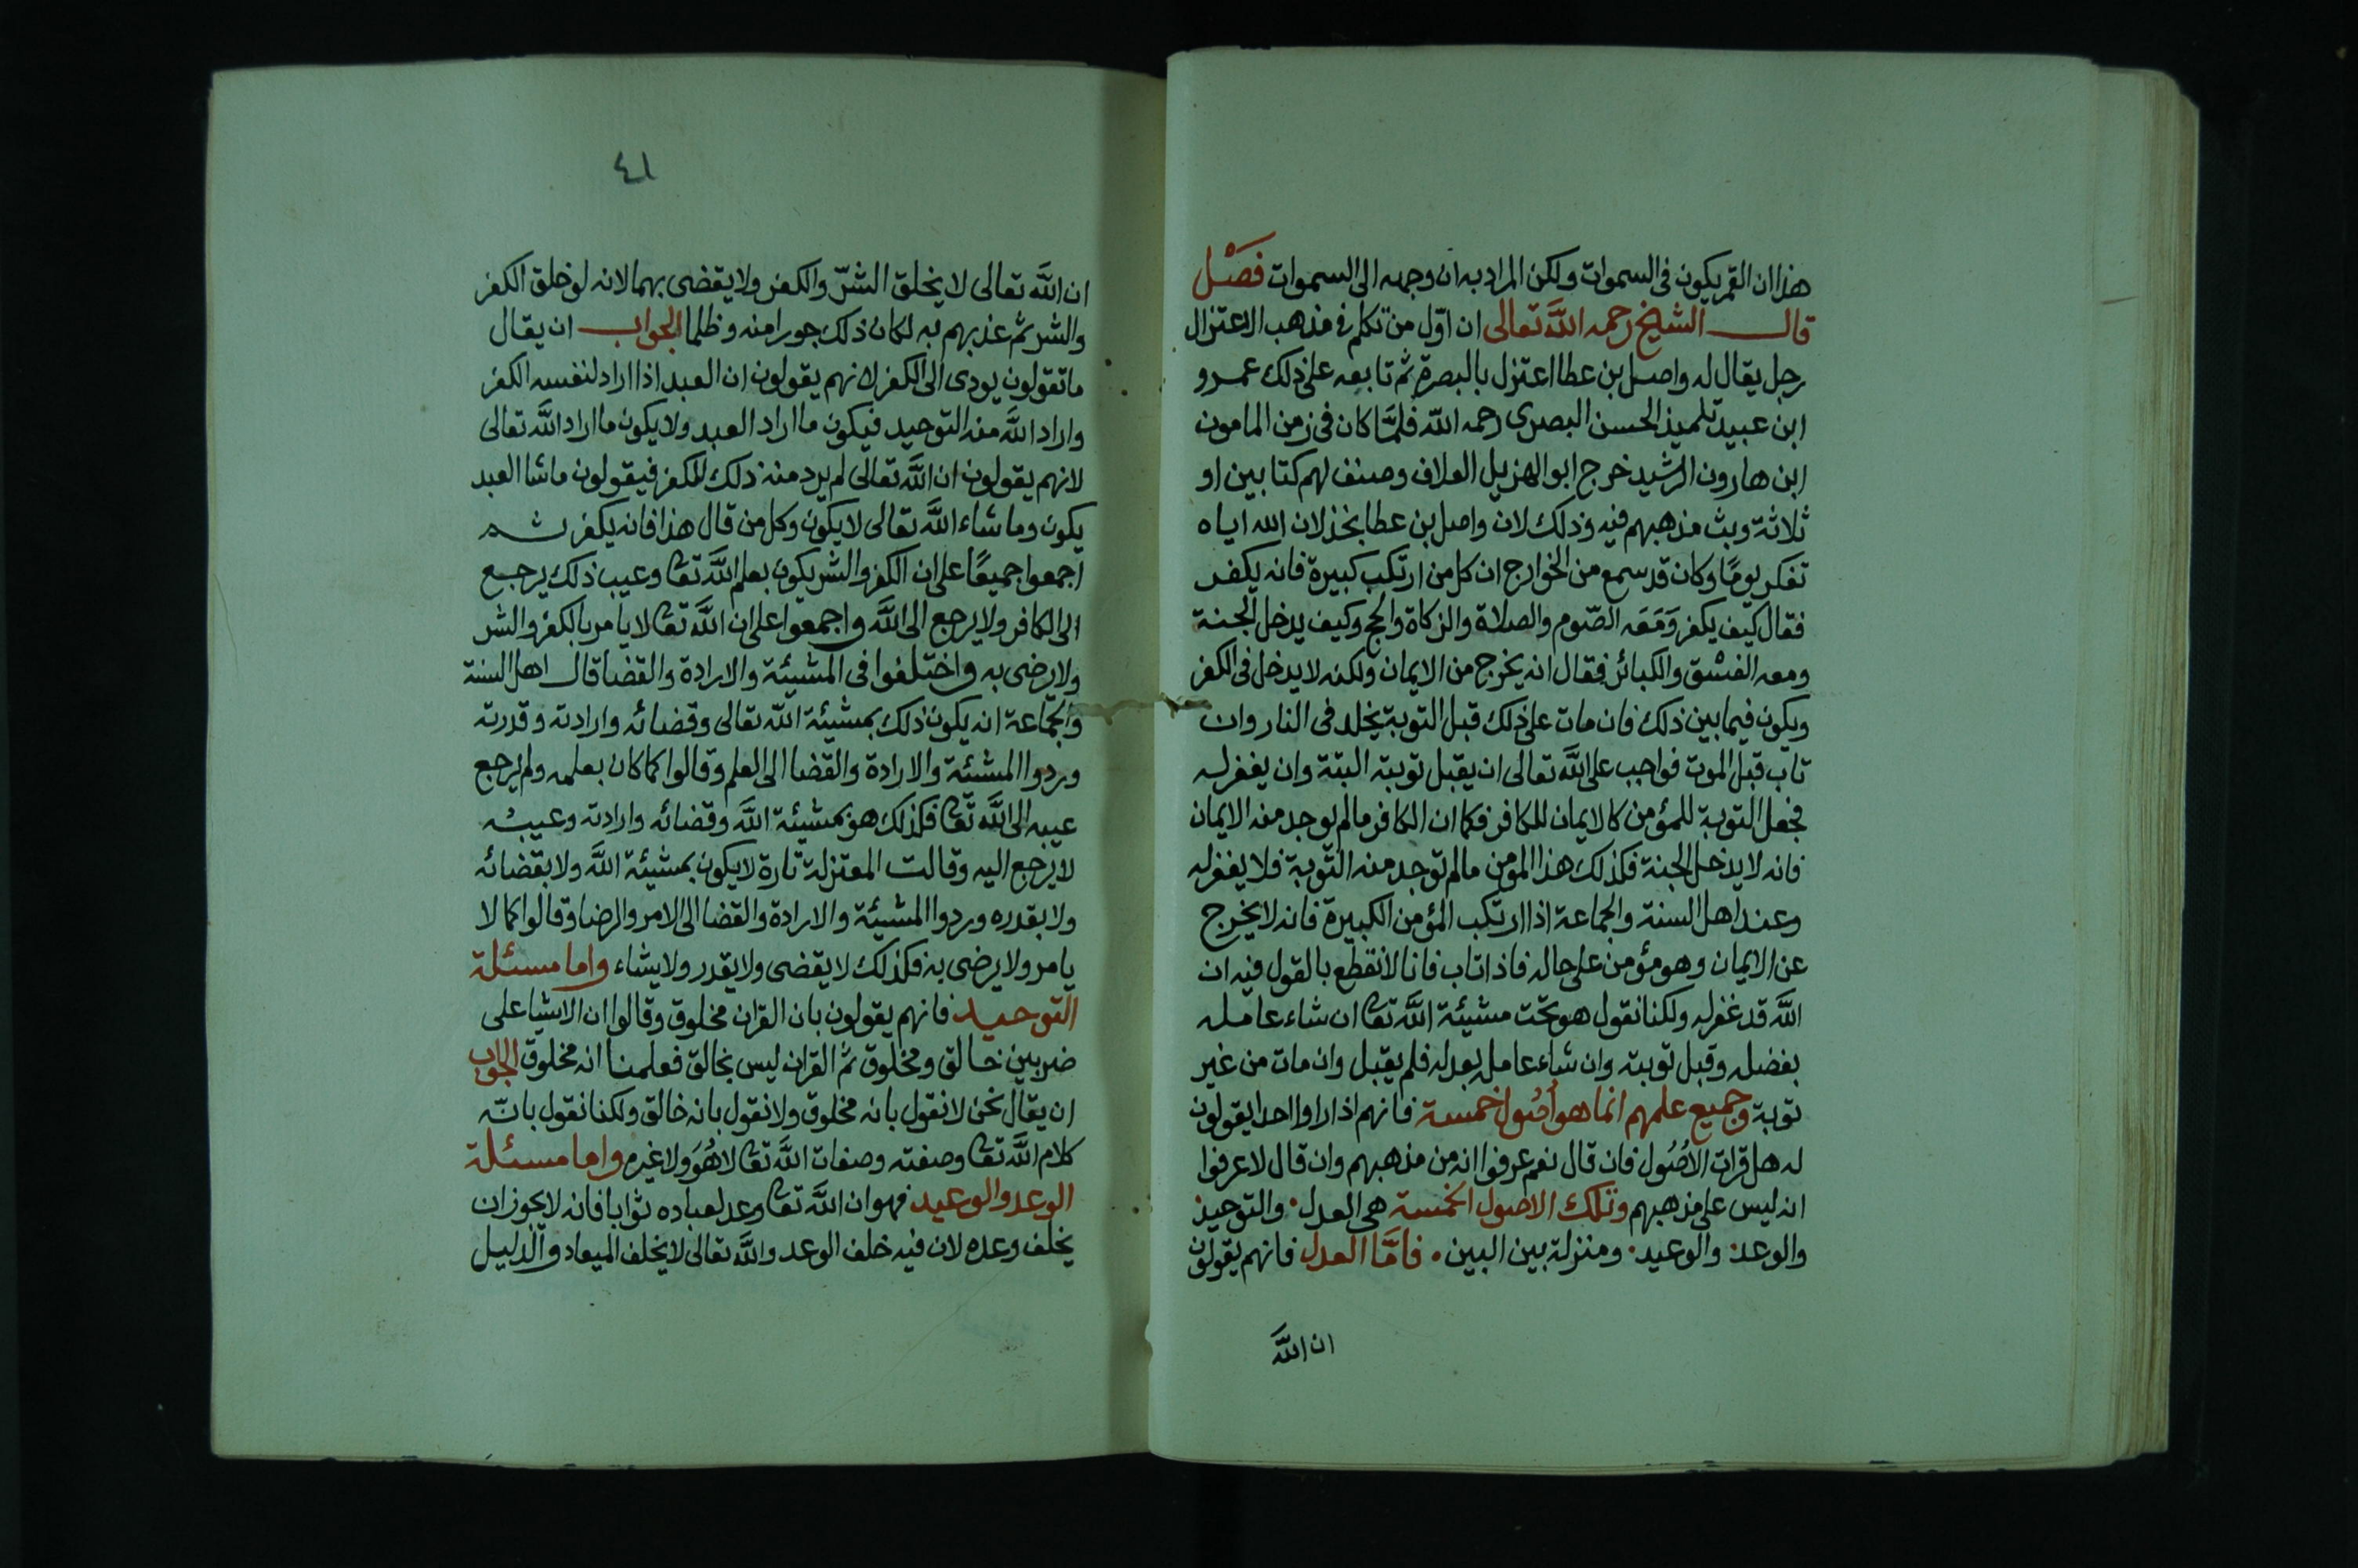 هذا ان القمر يكون فى السموات ولكن المراد به ان وجهه الى السموات فَصْل
قال الشيخ رحمه اللَّه تعالى ان اوّل من تكلم فى مذهب الاعتزال
رجل يقال له واصل بن عطا اعتزل بالبصرة ثم تابعه على ذلك عمرو
ابن عبيد تلميذ الحسن البصرى رحمه اللّه فلمَّا كان فى زمن المامون
ابن هارون الرشيد خرج ابو الهزيل العلاف وصنف لهم كتابين او
ثلاثة وبث مذهبهم فيه وذلك لان واصل بن عطا بخذلان الله اياه
تفكر يومًا وكان قد سمع من الخوارج ان كل من ارتكب كبيرة فانه يكفر
فقال كيف يكفر وَمَعَه الصّوم والصلاة والزكاة والحج وكيف يدخل الجنة
ومعه الفسْق والكبائر فقال انه يخرج من الايمان ولكنه لا يدخل فى الكفر
ويكون فيما بين ذلك فان مات على ذلك قبل التوبة يخلد فى النار وان
تاب قبل الموت فواجب على اللَّه تعالى ان يقبل توبته البتة وان يغفر له
فجعل التوبة للمؤمن كالايمان للكافر فكما ان الكافر ما لم يوجد منه الايمان
فانه لا يدخل الجنة فكذلك هذا المومن ما لم توجد منه التوبة فلا يغفر له
وعند اهل السنة والجماعة اذا ارتكب المؤمن الكبيرة فانه لا يخرج
عن الايمان وهو مؤمن على حاله فاذا تاب فانا لا نقطع بالقول فيه ان
اللَّه قد غفر له ولكنا نقول هو تحت مشيئة اللَّه تعا ان شاء عامله
بفضله وقبل توبته وان شاء عامله بعدله فلم يقبل وان مات من غير
توبة وجميع علمهم انما هو أصُول خمسة فانهم اذا راوا احدا يقولون
له هل قرات الأصُول فان قال نعم عرفوا انه من مذهبهم وان قال لا عرفوا
انه ليس على مذهبهم وتلك الاصول الخمسة هى العدل. والتوحيد
والوعد. والوعيد. ومنزلة بين البين. فامَّا العدل فانهم يقولون
ان اللَّه
٤١
ان اللَّه تعالى لا يخلق الشرّ والكفر ولا يقضى بهما لانه لو خلق الكفر
والشر ثم عذبهم به لكان ذلك جورا منه وظلما الجواب ان يقال
ما تقولون يودى الى الكفر لانهم يقولون ان العبد اذا اراد لنفسه الكفر
واراد اللَّه منه التوحيد فيكون ما اراد العبد ولا يكون ما اراد اللَّه تعالى
لانهم يقولون ان اللَّه تعالى لم يرد منه ذلك الكفر فيقولون ما شا العبد
يكون وما شاء اللَّه تعالى لا يكون وكل من قال هذا فانه يكفر ثم
اجمعوا جميعًا على ان الكفر والشر يكون بعلم اللَّه تعا وعيب ذلك يرجع
الى الكافر ولا يرجع الى اللَّه واجمعوا على ان اللَّه تعا لا يامر بالكفر والشر
ولا يرضى به واختلفوا فى المشيئة والارادة والقضا قال اهل السنة
والجماعة انه يكون ذلك بمشيئة اللّه تعالى وقضائه وارادته وقدرته
وردوا المشيئة والارادة والقضا الى العلم وقالوا كما كان بعلمه ولم يرجع
عيبه الى اللَّه تعا فكذلك هو بمشيئة اللَّه وقضائه وارادته وعيبه
لا يرجع اليه وقالت المعتزلة تارة لا يكون بمشيئة اللَّه ولا بقضائه
ولا بقدره وردوا المشيئة والارادة والقضا الى الامر والرضا وقالوا كما لا
يامر ولا يرضى به فكذلك لا يقضى ولا يقدر ولا يشاء واما مسئلة
التوحيد فانهم يقولون بان القران مخلوق وقالوا ان الاشيا على
ضربين خالق ومخلوق ثم القران ليس بخالق فعلمنا انه مخلوق الجواب
ان يقال نحن لا نقول بانه مخلوق ولا نقول بانه خالق ولكنا نقول بانّه
كلام اللَّه تعا وصفته وصفات اللَّه تعا لا هُوَ ولا غيره واما مسئلة
الوعد والوعيد فهو ان اللَّه تعا وعد لعباده ثوابا فانه لا يجوز ان
يخلف وعده لان فيه خلف الوعد واللَّه تعالى لا يخلف الميعاد والدليل